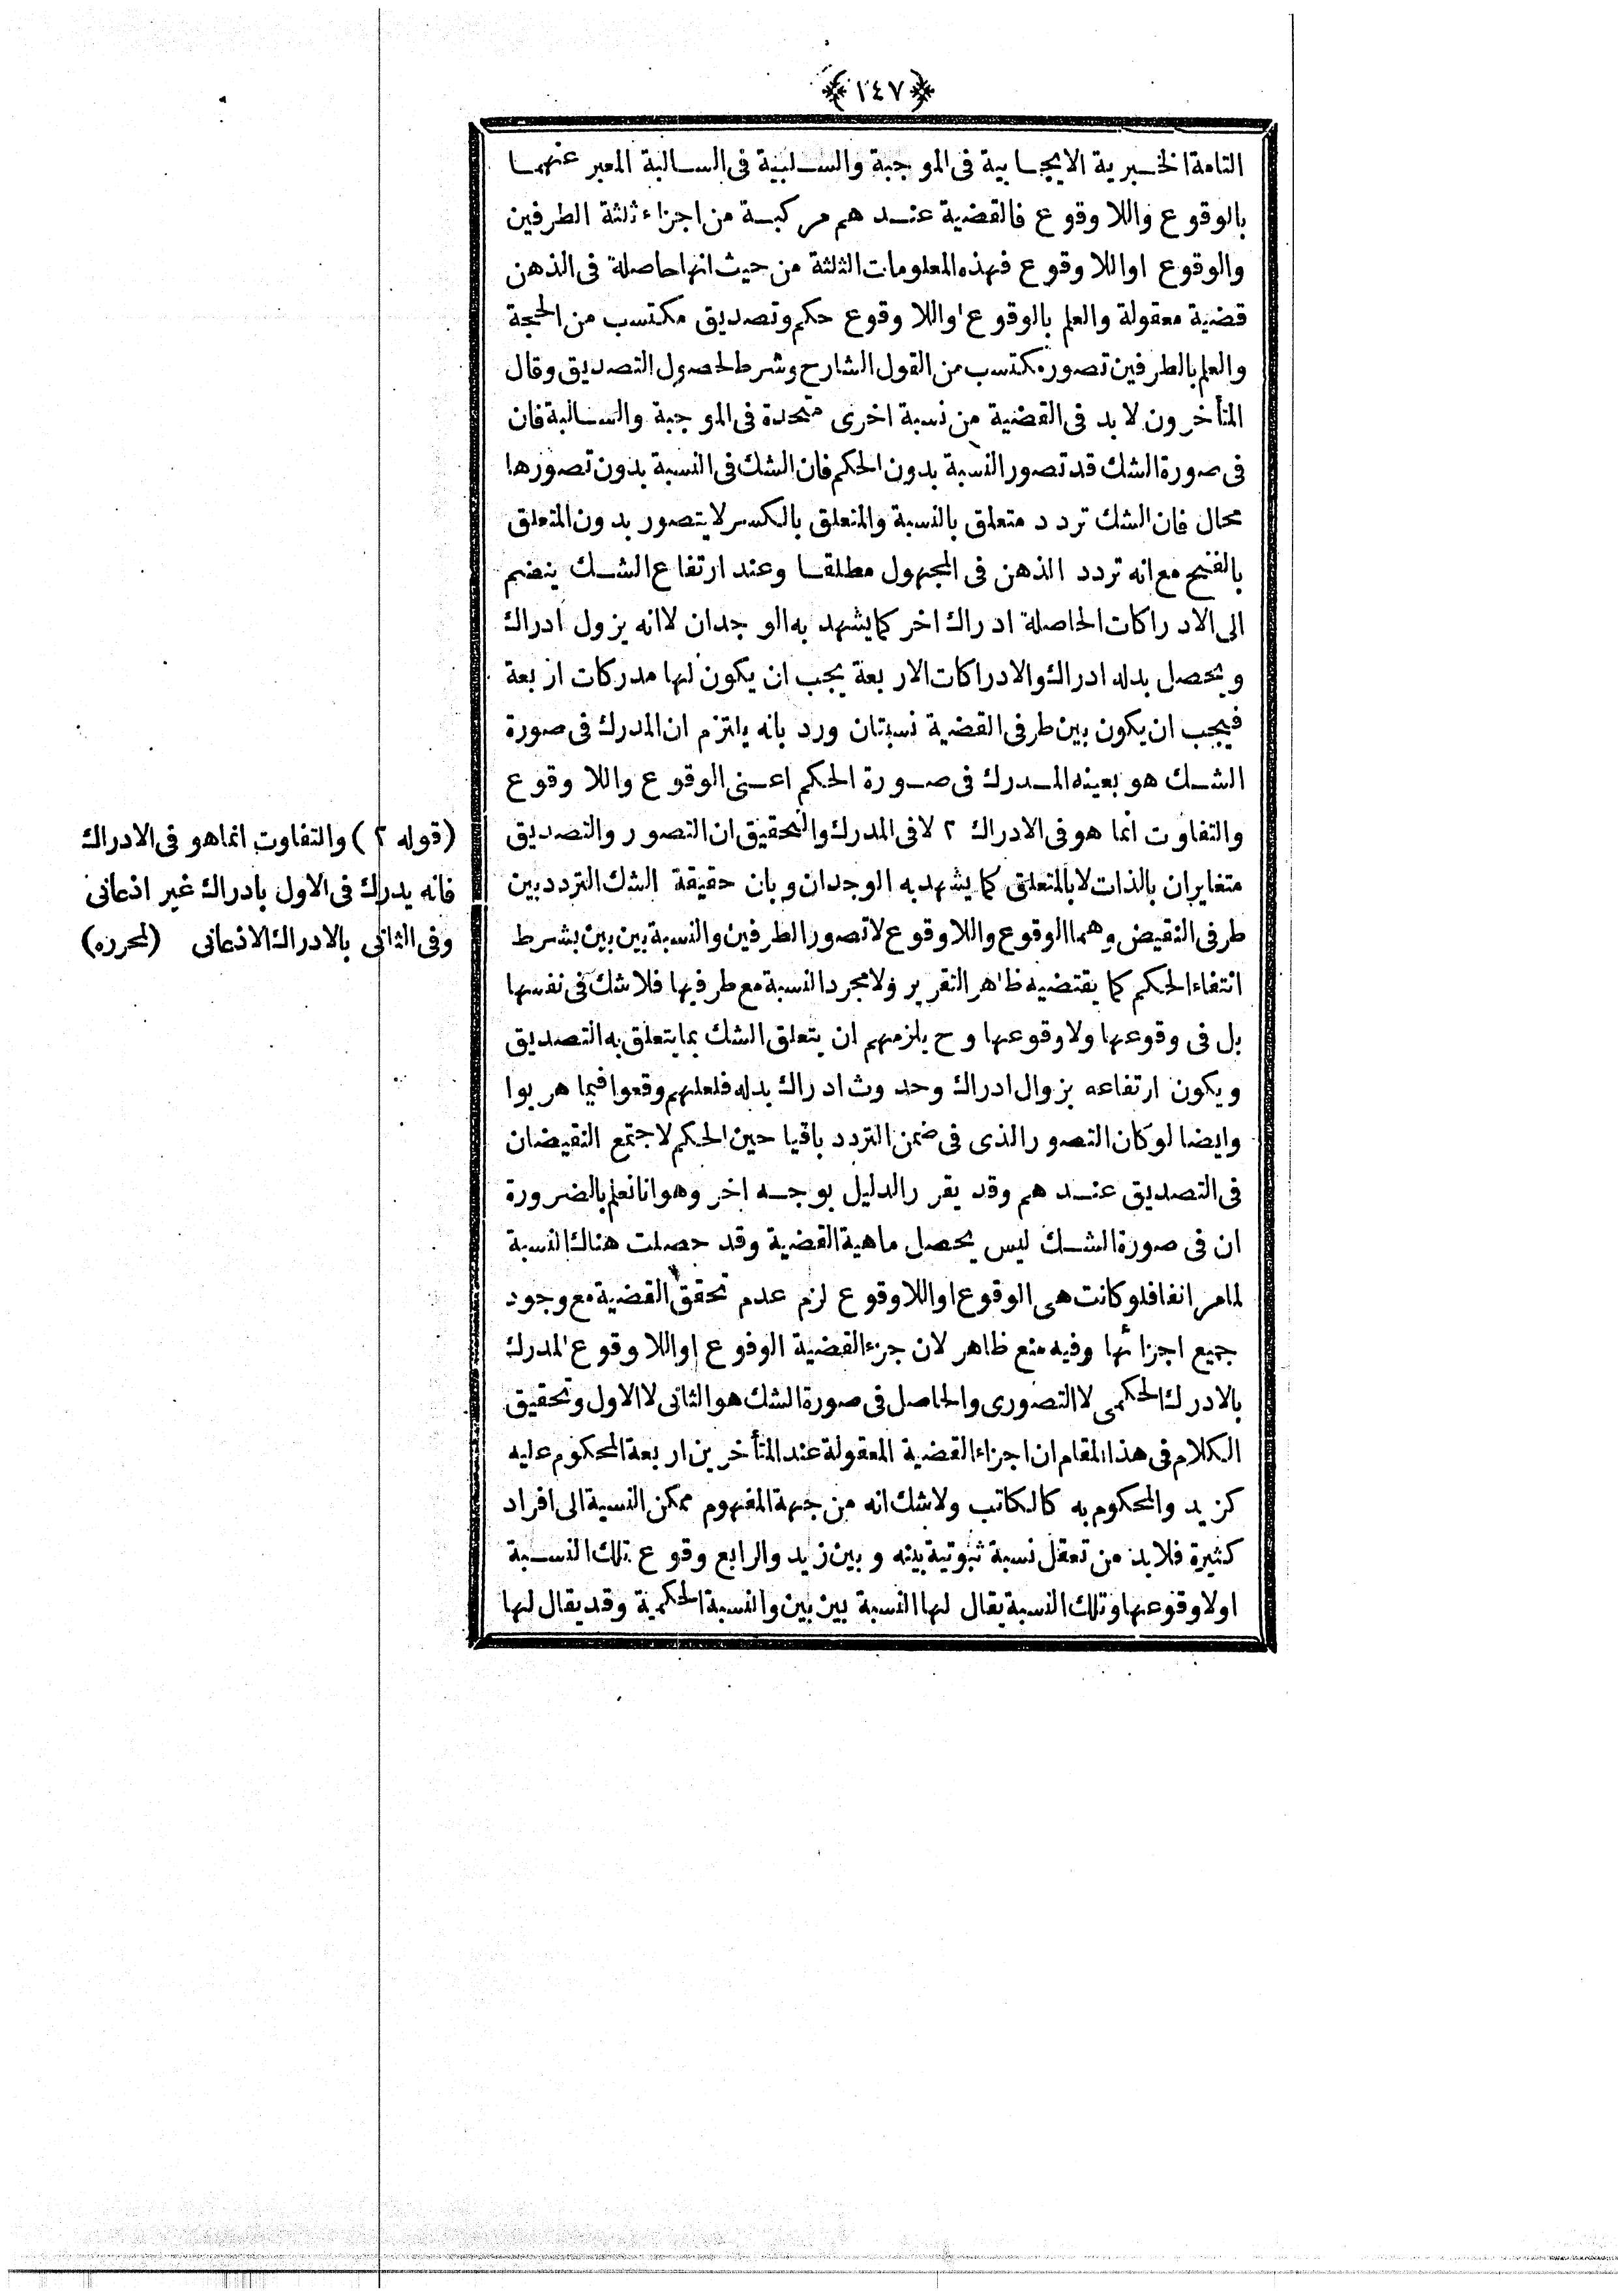 ﴿١٤٧﴾
التامة الخبرية الايجابية فى الموجبة والسلبية فى السالبة المعبر عنهما
بالوقوع واللا وقوع فالقضية عندهم مركبة من اجزاء ثلثة الطرفين
والوقوع او اللا وقوع فهذه المعلومات الثلثة من حيث انها حاصلة فى الذهن
قضية معقولة والعلم بالوقوع او اللا وقوع حكم وتصديق مكتسب من الحجة
والعلم بالطرفين تصور مكتسب من القول الشارح وشرط لحصول التصديق وقال
المتأخرون لا بد فى القضية من نسبة اخرى متحدة فى الموجبة والسالبة فان
فى صورة الشك قد تصور النسبة بدون الحكم فان الشك فى النسبة بدون تصورها
محال فان الشك تردد متعلق بالنسبة والمتعلق بالكسر لا يتصور بدون المتعلق
بالفتح مع انه تردد الذهن فى المجهول مطلقا وعند ارتفاع الشك ينضم
الى الادراكات الحاصلة ادراك اخر كما يشهد به الوجدان لا انه يزول ادراك
ويحصل بدله ادراك والادراكات الاربعة يجب ان يكون لها مدركات اربعة
فيجب ان يكون بين طرفى القضية نسبتان ورد بانه يلتزم ان المدرك فى صورة
الشك هو بعينه المدرك فى صورة الحكم اعنى الوقوع واللا وقوع
والتفاوت انما هو فى الادراك ٢ لا فى المدرك والتحقيق ان التصور والتصديق
متغايران بالذات لا بالمتعلق كما يشهد به الوجدان وبان حقيقة الشك التردد بين
طرفى النقيض وهما الوقوع واللا وقوع لا تصور الطرفين والنسبة بين بين بشرط
انتفاء الحكم كما يقتضيه ظاهر التقرير ولا مجرد النسبة مع طرفيها فلا شك فى نفسها
بل فى وقوعها ولا وقوعها وح يلزمهم ان يتعلق الشك بما يتعلق به التصديق
ويكون ارتفاعه بزوال ادراك وحدوث ادراك بدله فلعلهم وقعوا فيما هربوا
وايضا لو كان التصور الذى فى ضمن التردد باقيا حين الحكم لاجتمع النقيضان
فى التصديق عندهم وقد يقرر الدليل بوجه اخر وهو انا نعلم بالضرورة
ان فى صورة الشك ليس يحصل ماهية القضية وقد حصلت هناك النسبة
لما مر انفا فلو كانت هى الوقوع او اللا وقوع لزم عدم تحقق القضية مع وجود
جميع اجزائها وفيه منع ظاهر لان جزء القضية الوقوع او اللا وقوع المدرك
بالادرك الحكمى لا التصورى والحاصل فى صورة الشك هو الثانى لا الاول وتحقيق
الكلام فى هذا المقام ان اجزاء القضية المعقولة عند المتأخرين اربعة المحكوم عليه
كزيد والمحكوم به كالكاتب ولا شك انه من جهة المفهوم ممكن النسبة الى افراد
كثيرة فلا بد من تعقل نسبة ثبوتية بينه وبين زيد والرابع وقوع تلك النسبة
او لا وقوعها وتلك النسبة يقال لها النسبة بين بين والنسبة الحكمية وقد يقال لها
(قوله ٢) والتفاوت انما هو فى الادراك
فانه يدرك فى الاول بادراك غير اذعانى
وفى الثانى بالادراك الاذعانى (لمحرره)